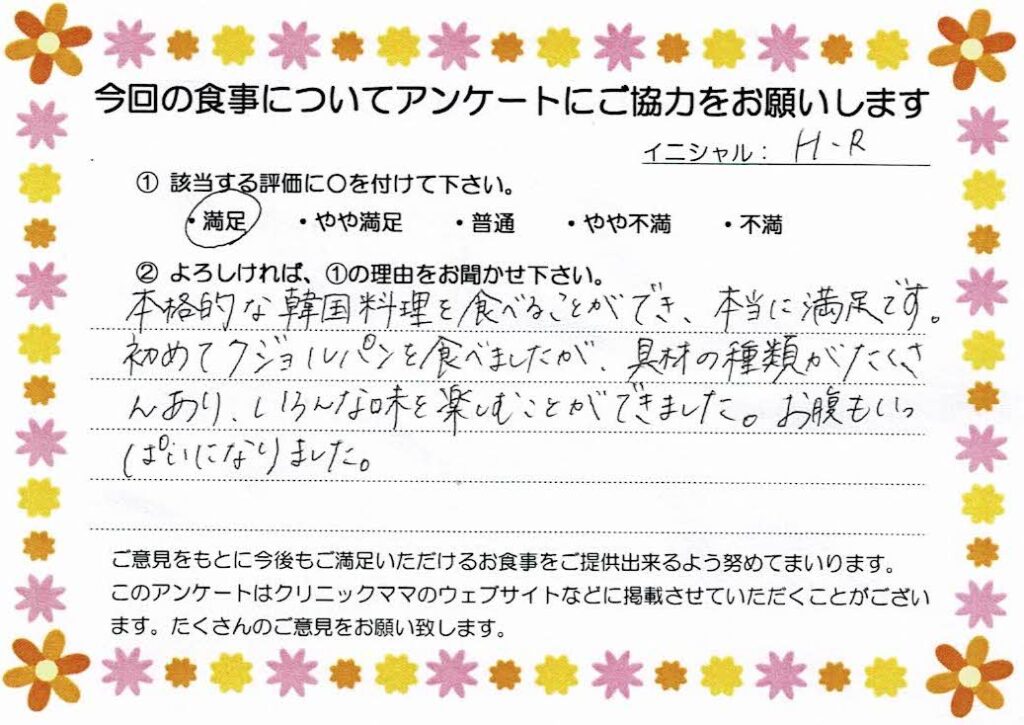 今回の食事についてアンケートにご協力をお願いします
イニシャル： H-R
① 該当する評価に〇を付けて下さい。
・満足 ・やや満足 ・普通 ・やや不満 ・不満
② よろしければ、①の理由をお聞かせ下さい。
本格的な韓国料理を食べることができ、本当に満足です。
初めてクジョルパンを食べましたが、具材の種類がたくさ
んあり、いろんな味を楽しむことができました。お腹もいっ
ぱいになりました。
ご意見をもとに今後もご満足いただけるお食事をご提供出来るよう努めてまいります。
このアンケートはクリニックママのウェブサイトなどに掲載させていただくことがござい
ます。たくさんのご意見をお願い致します。